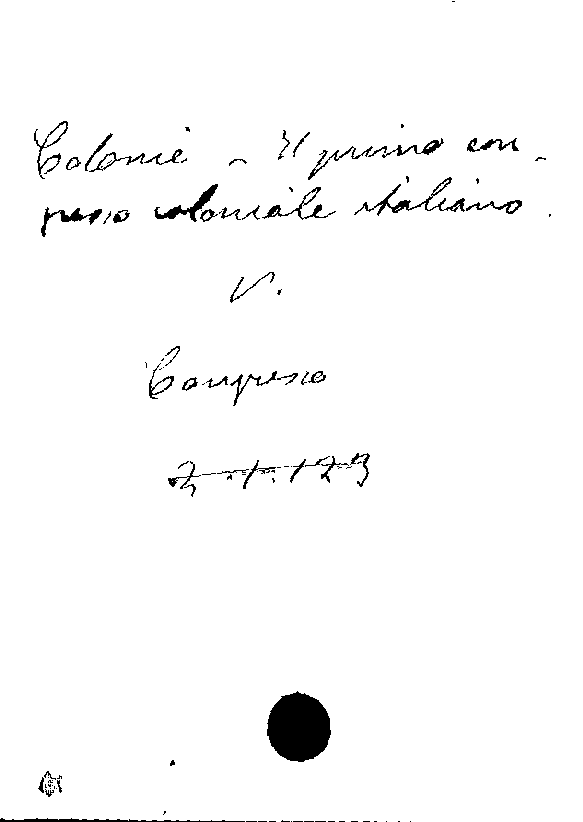 Colonie - Il primo con-
gresso coloniale italiano.
V.
Congresso
2.1.123